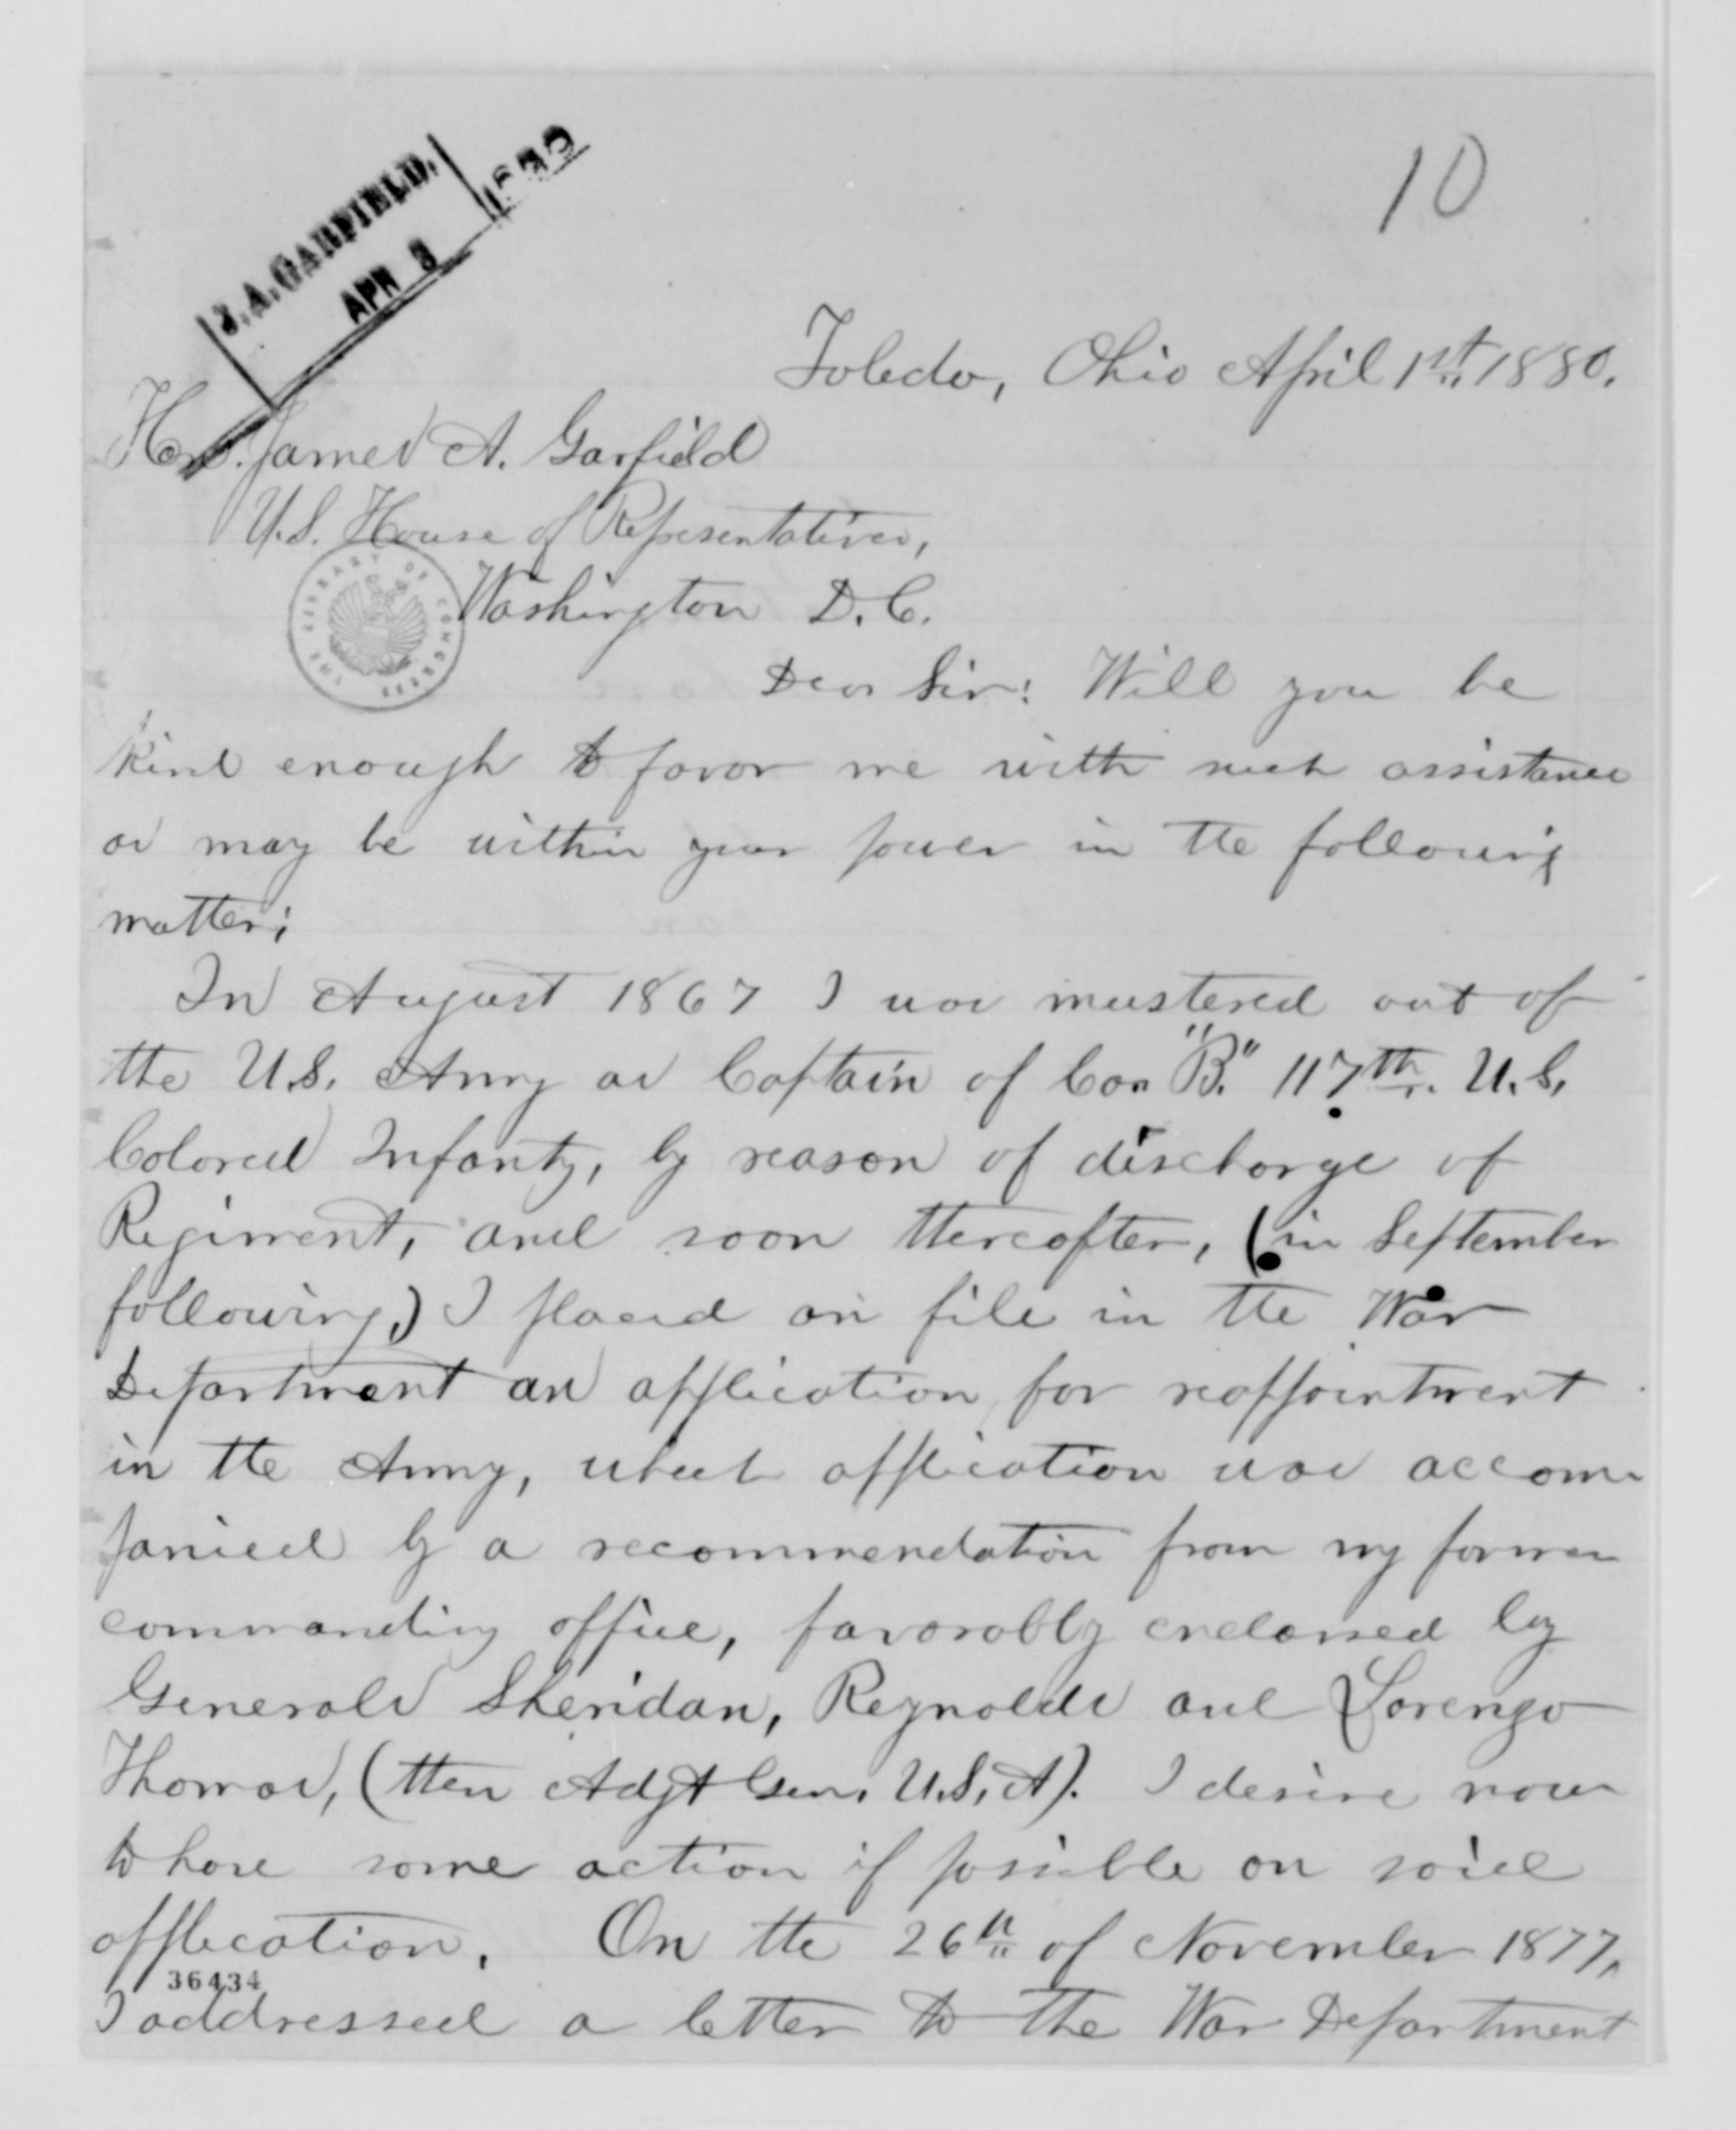 10
J. A. GARFIELD.
APR 3
1880
Toledo, Ohio April 1st 1880.
Hon. James A. Garfield
U.S. House of Representatives,
THE LIBRARY OF CONGRESS
Washington D.C.
Dear Sir: Will you be
kind enough to favor me with such assistance
as may be within your power in the following
matter;
In August 1867 I was mustered out of
the U.S. Army as Captain of Co. "B." 117th. U.S.
Colored Infanty, by reason of discharge of
Regiment, and soon thereafter, (in September
following) I placed on file in the War
Department an application for reappointment
in the Army, which application was accom-
panied by a recommendation from my former
commanding officer, favorably endorsed by
Generals Sheridan, Reynolds and Lorenzo
Thomas, (then Adjt Gen. U.S.A). I desire now
to have some action if possible on said
application. On the 26th of November 1877,
36434
I addressed a letter to the War Department